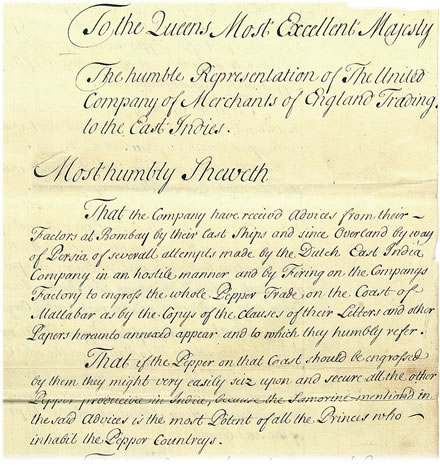 To the Queens Most Excellent Majesty
The humble Representation of The United
Company of Merchants of England Trading
to the East Indies.
Most humbly Sheweth
That the Company have receivd Advices from their
Factors at Bombay by their last Ships and since Overland by way
of Persia of severall attempts made by the Dutch East India
Company in an hostile manner and by Firing on the Companys
Factory to engross the whole Pepper Trade on the Coast of
Mallabar as by the Copys of the Clauses of their Letters and other
Papers hereunto annexed appear and to which they humbly refer.
That if the Pepper on that Coast should be engrossed
by them they might very easily seiz upon and secure all the other
Pepper produceive in India, because the Samorine mentioned in
the said Advices is the most Potent of all the Princes who
inhabit the Peppor Countreys.